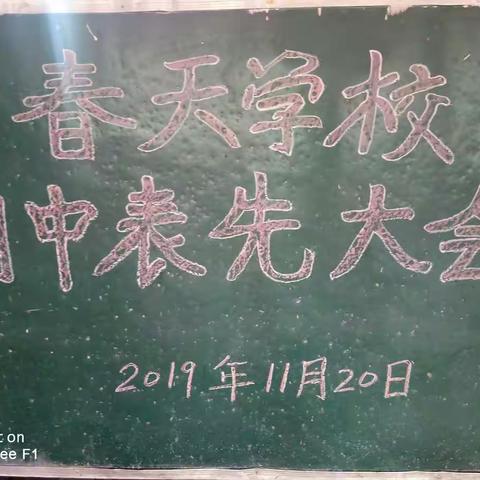 春天学校
期中表先大会
2019年11月20日
t on
ee F1